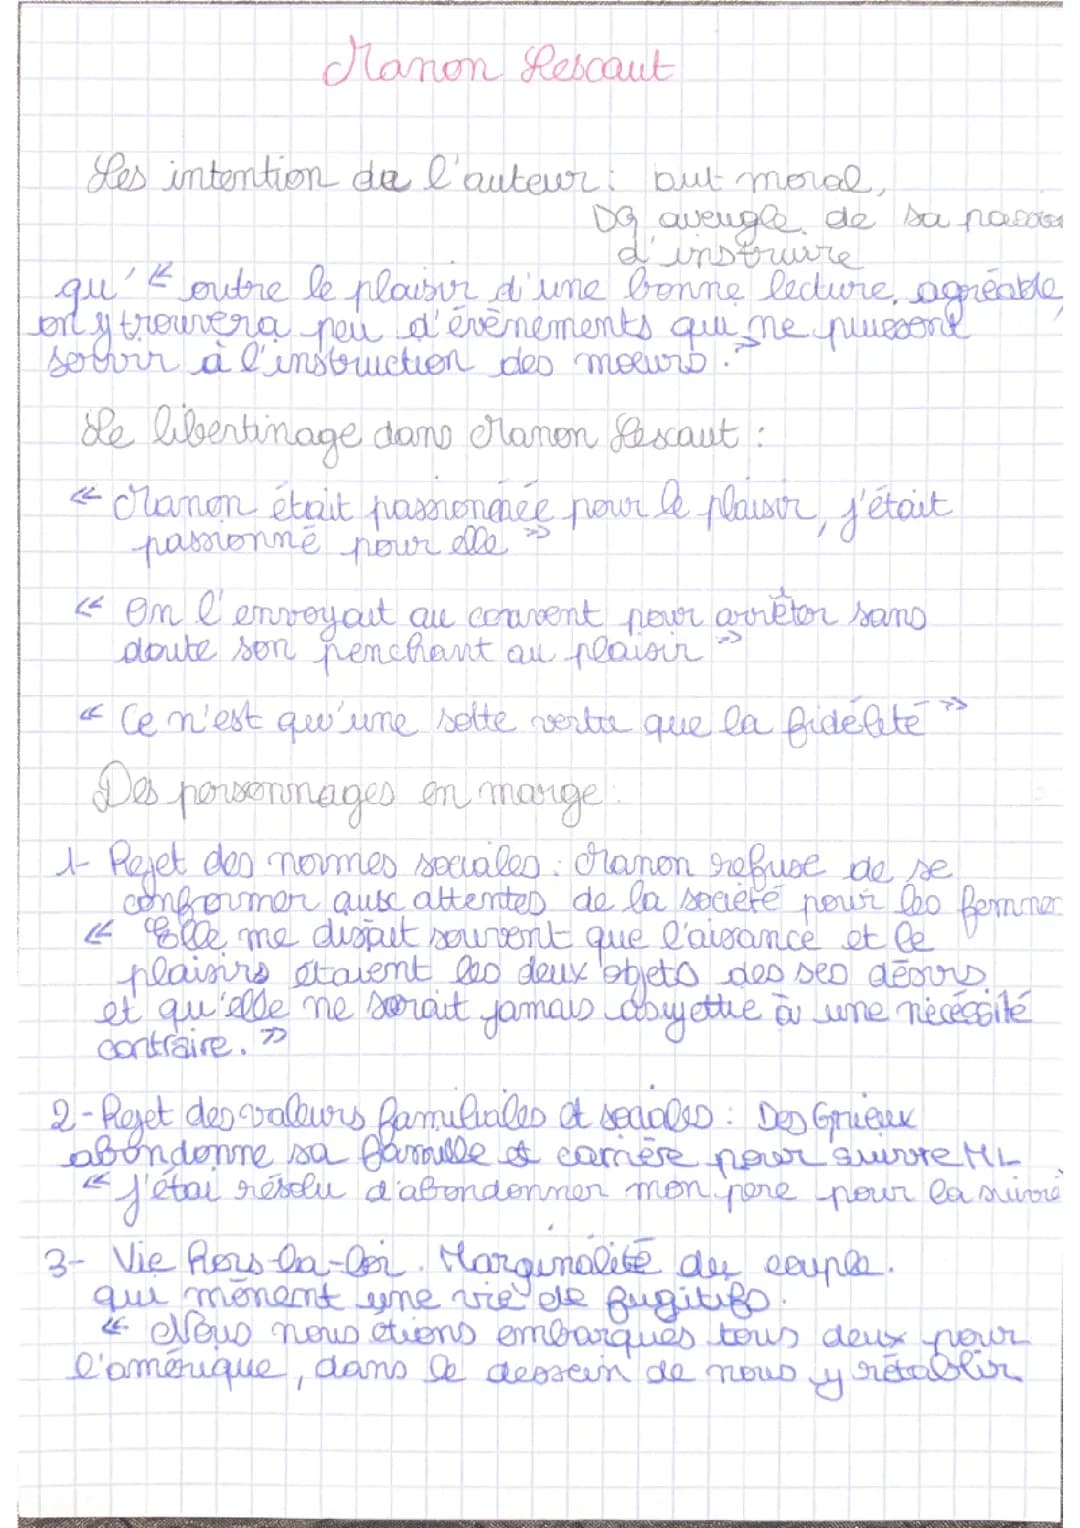 Manon Lescaut
Les intention de l'auteur : but moral,
DG aveugle de sa passion
d'instruire
qu' « outre le plaisir d'une bonne lecture, agréable,
on y trouvera peu d'évènements qui ne puissent
servir à l'instruction des moeurs. »
Le libertinage dans Manon Lescaut :
« Manon était passionnée pour le plaisir, j'était
passionné pour elle »
« On l'envoyait au couvent pour arrêter sans
doute son penchant au plaisir »
« Ce n'est qu'une sotte vertu que la fidélité »
Des personnages en marge :
1- Rejet des normes sociales : Manon refuse de se
conformer aux attentes de la société pour les femmes
« Elle me disait souvent que l'aisance et le
plaisirs étaient les deux objets des ses désirs
et qu'elle ne serait jamais assujettie à une nécéssité
contraire. »
2- Rejet des valeurs familiales et sociales : Des Grieux
abondonne sa famille et carrière pour suivre ML
« J'étai résolu d'abondonner mon père pour la suivre
3- Vie hors-la-loi. Marginalité du couple.
qui mènent une vie de fugitifs.
« Nous nous étions embarqués tous deux pour
l'amérique, dans le dessein de nous y rétablir